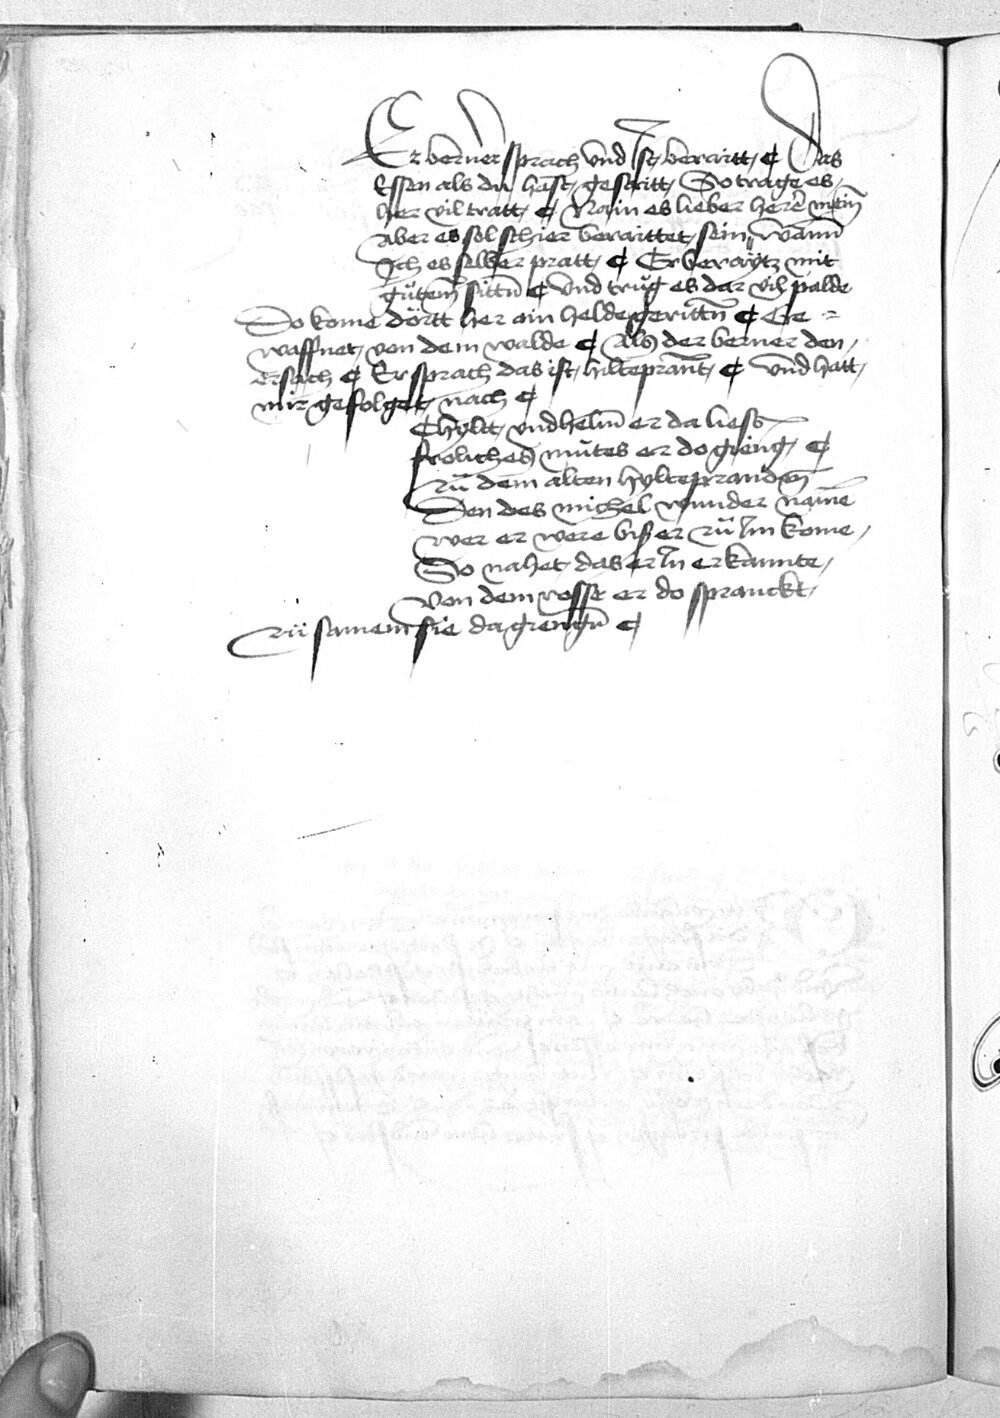 Er berner sprach vnd ist beraitt ¢ Das
Essen als du hast gesaitt So trage es
her vil tratt ¢ Nain es lieber herē mein
Aber es sol schier beraittet sein wann
Ich es selber pratt ¢ Er beraytz mit
gůtem sittn̄ ¢ vnd trůg es dar vil palde
Do kome dörtt her ain helde gerittn̄ ¢ Ge =
waffnet von dem walde ¢ Als der berner den
ersach ¢ Er sprach das ist hilteprant ¢ vnd hatt
mir gefolget nach ¢
Schyltt vnd helm er da liess
froliches můtes er do gieng ¢
zů dem alten hylteprandem̄
Den des michel wunder name
wer er were biß er zů Im kome
So nahet das er In erkannte
Von dem rosse er do spranckt
zů samem sie da giengn̄ ¢